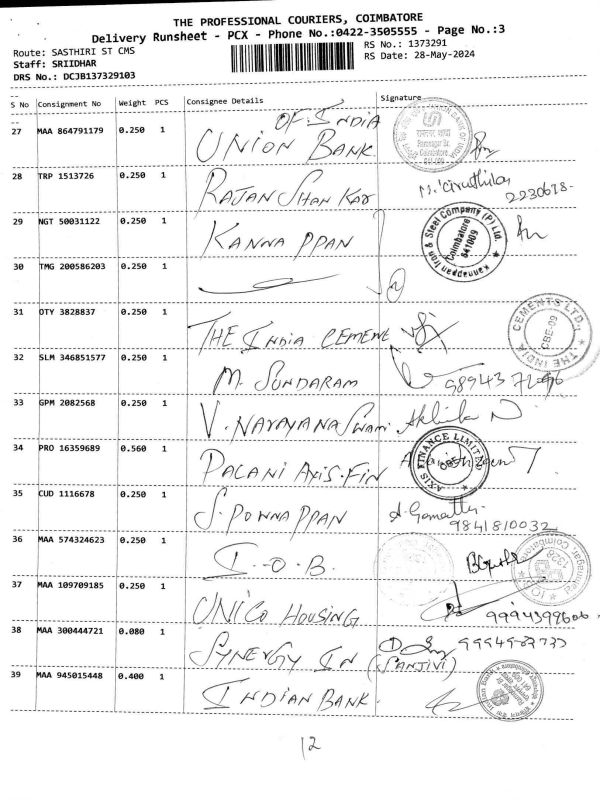 THE PROFESSIONAL COURIERS, COIMBATORE
Delivery Runsheet - PCX - Phone No.:0422-3505555 - Page No.:3
Route: SASTHIRI ST CMS
RS No.: 1373291
Staff: SRIIDHAR
RS Date: 28-May-2024
DRS No.: DCJB137329103
S No Consignment No Weight PCS Consignee Details Signature
27 MAA 864791179 0.250 1 UNION BANK OF INDIA
28 TRP 1513726 0.250 1 RAJAN SHANKAR 2230678-
29 NGT 50031122 0.250 1 KANNAPPAN Kannappan Iron & Steel Company (P) Ltd. Coimbatore 641009
30 TMG 200586203 0.250 1
31 OTY 3828837 0.250 1 THE INDIA CEMENT THE INDIA CEMENTS LTD., CBE-09
32 SLM 346851577 0.250 1 M. SUNDARAM
33 GPM 2082568 0.250 1 V. NARAYANASwami Akhila N
34 PRO 16359689 0.560 1 PALANI AXIS.FIN AXIS FINANCE LIMITED
35 CUD 1116678 0.250 1 S. PONNAPPAN A. Gomathy 9841810032
36 MAA 574324623 0.250 1 I.O.B.
37 MAA 109709185 0.250 1 UNICO HOUSING 9994399606
38 MAA 300444721 0.080 1 SYNERGY IN (SANJIVI)
39 MAA 945015448 0.400 1 INDIAN BANK.
12